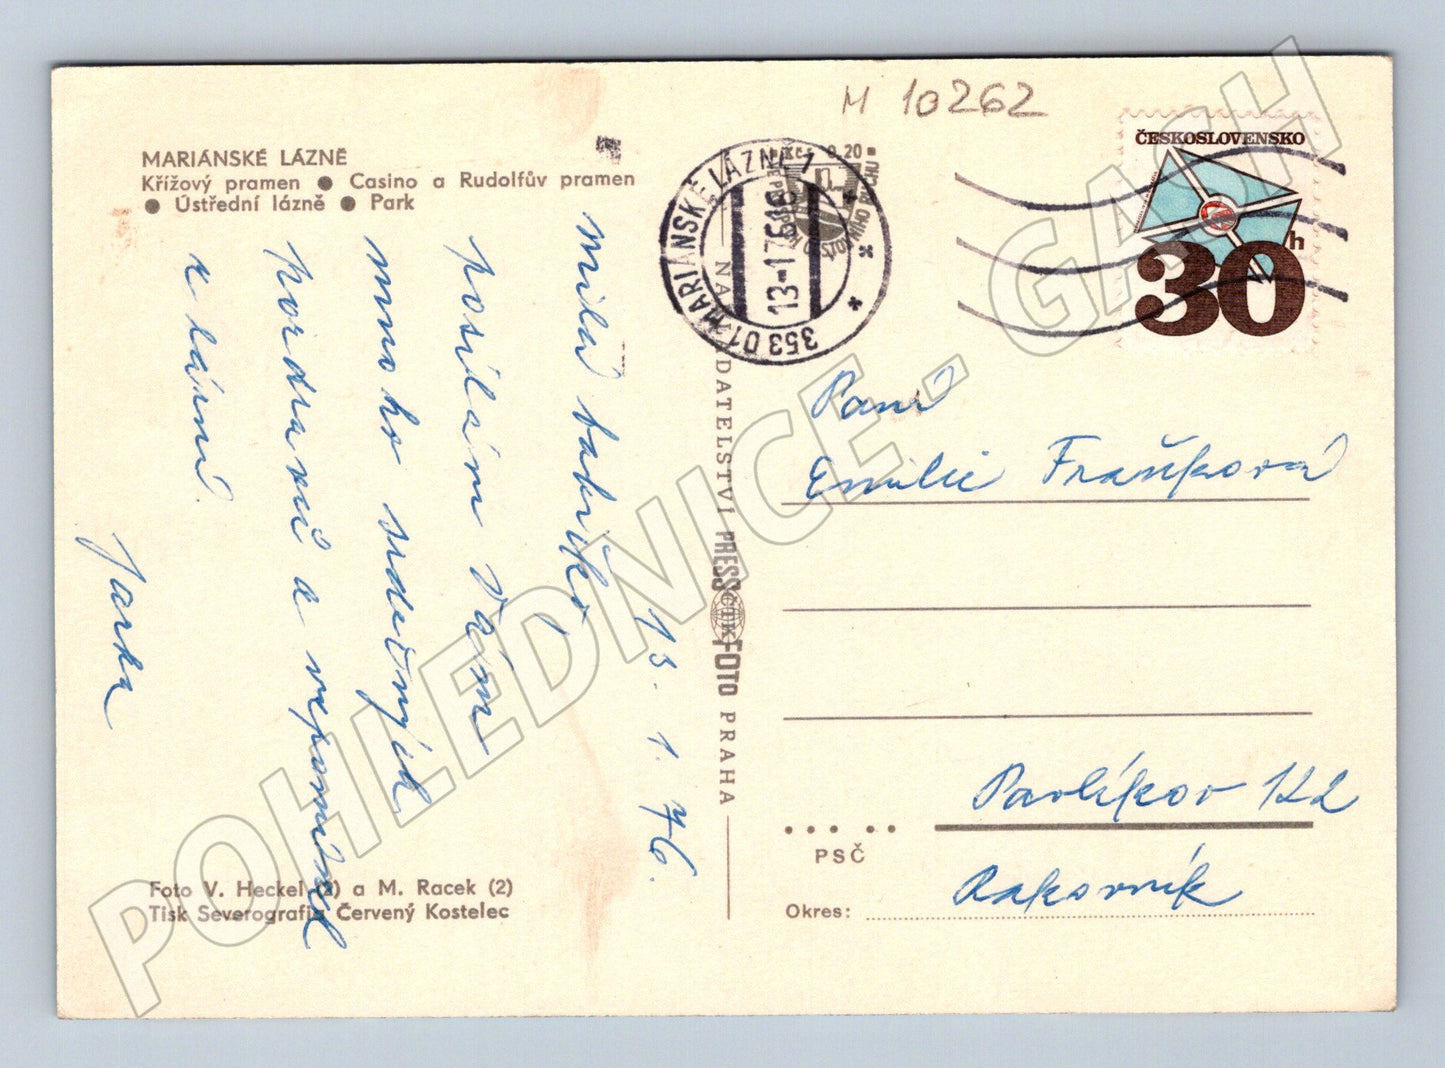 M 10262
MARIÁNSKÉ LÁZNĚ
Křížový pramen ● Casino a Rudolfův pramen
● Ústřední lázně ● Park
13. 1. 76.
Milá babičko,
posílám Vám
mnoho srdečných
pozdravů a vzpomínek
z lázní.
Jarka
Foto V. Heckel (2) a M. Racek (2)
Tisk Severografia Červený Kostelec
NAKLADATELSTVÍ PRESSFOTO PRAHA
ČTK
353 01 MARIÁNSKÉ LÁZNĚ 1
13-1 76
Kčs 0,20
ČESKOSLOVENSKO
30h
Paní
Emilie Fraňková
Pavlíkov 122
PSČ
Rakovník
Okres:
POHLEDNICE.GASH